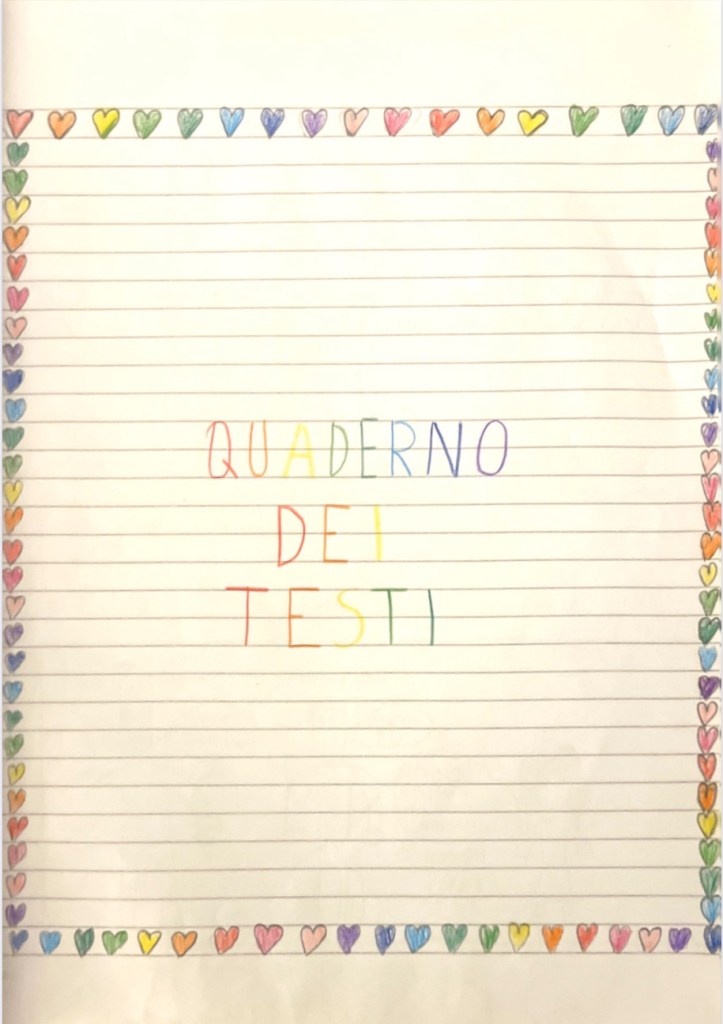 QUADERNO
DEI
TESTI